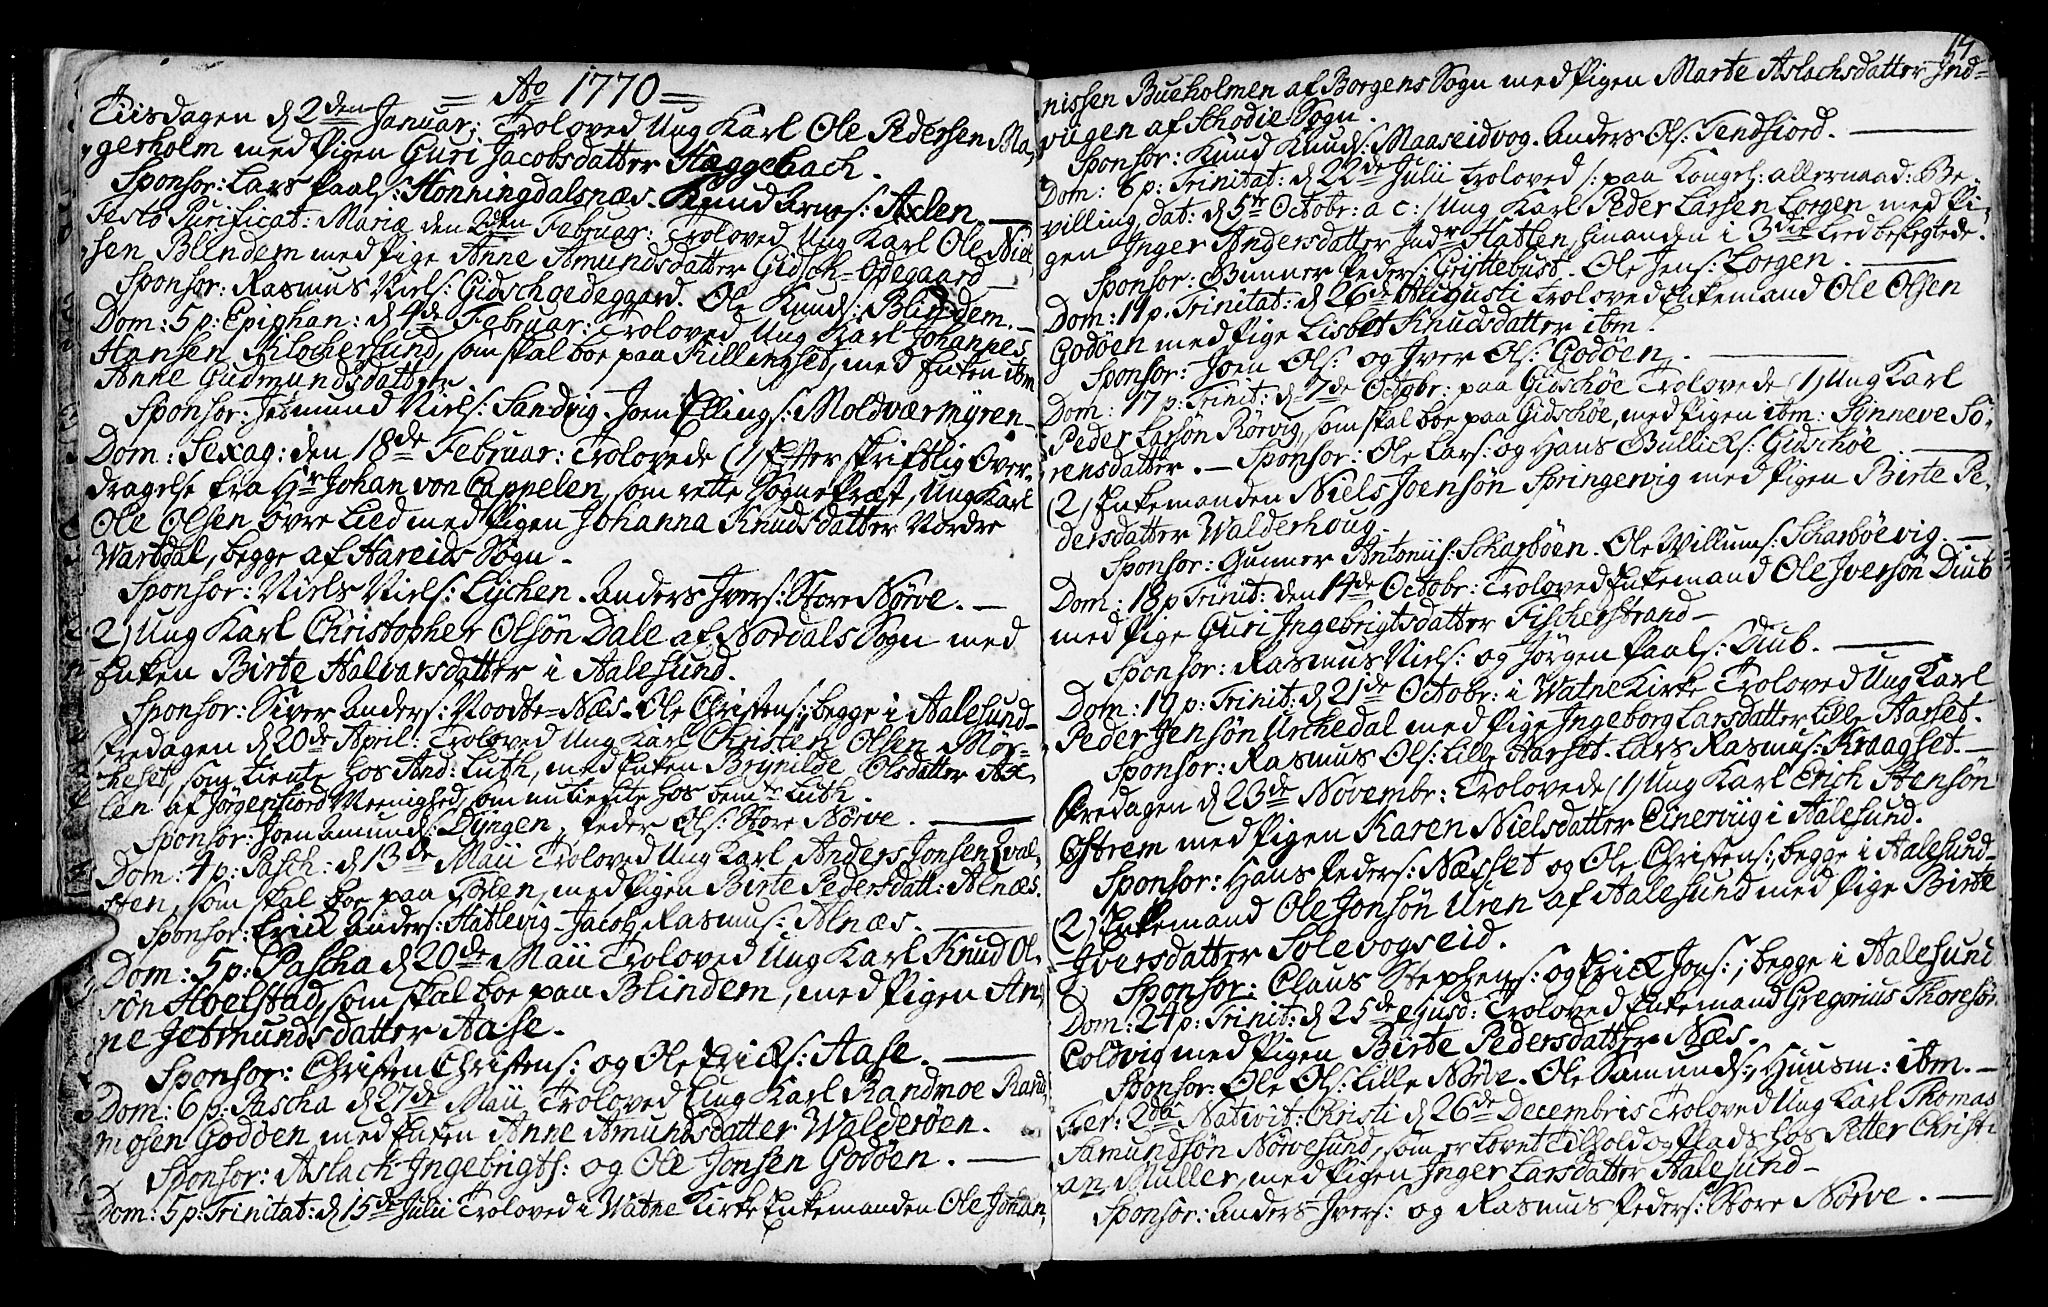 = Ao 1770 =
Tiisdagen d 2den Januar: Troloved Ung Karl Ole Pedersen Ma,
gerholm med Pigen Guri Jacobsdatter Hæggebach.
Sponsor: Lars Paals: Honningdalsnæs. Knud Arnes: Axlen. —
Festo Purificat: Mariæ den 2den Februar: Troloved Ung Karl Ole Niel,
sen Blendem med Pige Anne Amundsdatter Gidsch=Ødegaard —
Sponsor: Rasmus Niels: Gidschoedegaard. Ole Knuds: Blindem. —
Dom: 5 p: Epiphan: d 4de Februar: Troloved Ung Karl Johannes
Hansen Kilochersund, som skal boe paa Killingsed, med Enken ibm
Anne Gudmundsdatter
Sponsor: Jetmund Niels: Sandvig. Joen Ellings: Moldværmyren —
Dom: Sexag: den 18de Februar: Trolovede (1) Efter skriftlig Over-
dragelse fra Hr Johan von Cappelen, som rette Sogne Præst, Ung Karl
Ole Olsen Øvre Lied med Pigen Johanna Knudsdatter Nordre
Wartdal, begge af Hareids Sogn.
Sponsor: Niels Niels: Lychen. Anders Ivers: Store Nørve. —
2) Ung Karl Christopher Olsøn Dale af Nordals Sogn med
Enken Birte Halvarsdatter i Aalesund.
Sponsor: Siver Anders: Nodte=Næs. Ole Christens:, begge i Aalesund —
Fredagen d 20de April: Troloved Ung Karl Christen Olsen Mør=
cheset, som tiente hos And: Luth, med Enken Brynilde Olsdatter Ax,
len af Jørgenfiord Meenighed, som nu tiente hos bemte Luth.
Sponsor: Joen Amunds: Dyngen, Peder Ols: Store Nørve. —
Dom: 4 p: Pasch: d 13de Maii Troloved Ung Karl Anders Jonsen Qval,
sten, som skal boe paa Solen, med Pigen Birte Pedersdatt: Alnæs.
Sponsor: Erick Anders: Hatlevig. Jacob Rasmus: Alnæs. —
Dom: 5 p: Pascha d 20de Maii Troloved Ung Karl Knud Ol-
søn Hoelstad, som skal boe paa Blindem, med Pigen An,
ne Jetmundsdatter Aase.
Sponsor: Christen Christens: og Ole Ericks: Aase. —
Dom: 6 p: Pascha d 27de Maii Troloved Ung Karl Randmoe Rand,
mosen Godøen med Enken Anne Amundsdatter Walderøen.
Sponsor: Aslack Ingebrigts: og Ole Jonsen Godøen. —
Dom: 5 p: Trinitat: d 15de Julii Troloved i Watne Kirke Enkemanden Ole Johan,
nissen Bueholmen af Borgens Sogn med Pigen Marte Aslachsdatter Ind=
vugen af Skodie Sogn.
Sponsor: Knud Knuds: Maaseidvog. Anders Ols: Tendfiord. —
Dom: 6 p: Trinitat: d 22de Julii Troloved /: paa Kongel: allernaad: Be-
villing, dat: d 5te Octobr: a c: / Ung Karl Peder Larsen Lorgen med Pi-
gen Inger Andersdatter Indr Hatlen, hinanden i 3die Leed beslegtede.
Sponsor: Gunner Peders: Gristtebust. Ole Jens: Lorgen. —
Dom: 11 p: Trinitat: d 26de Augusti Troloved Enkemand Ole Olsen
Godøen med Pige Lisbet Knudsdatter ibm.
Sponsor: Joen Ols: og Iver Ols: Godøen. —
Dom: 17 p: Trinit: d 7de Octobr: paa Gidschøe Trolovede (1) Ung Karl
Peder Larsøn Rørvig, som skal boe paa Gidschøe, med Pigen ibm: Synneve Sø-
rensdatter. — Sponsor: Ole Lars: og Hans Bullicks: Gidschøe —
(2) Enkemanden Niels Joensøn Springervig med Pigen Birte Pe,
dersdatter Walderhoug.
Sponsor: Gunner Antonii: Scharbøen. Ole Willums: Scharbøevig. —
Dom: 18 p Trinit: den 14de Octobr: Troloved Enkemand Ole Iversøn Diub
med Pige Guri Ingebrigtsdatter Fischerstrand —
Sponsor: Rasmus Niels: og Jørgen Paals: Diub. —
Dom: 19 p: Trinit: d 21de Octobr: i Watne Kirke Troloved Ung Karl
Peder Jensøn Urchedal med Pige Ingeborg Larsdatter Lille Aarset.
Sponsor: Rasmus Ols: Lille Aarset. Lars Rasmus: Kraagset. —
Fredagen d 23de Novembr: Trolovede (1) Ung Karl Erich Stensøn
Østrem med Pigen Karen Nielsdatter Einerviig i Aalesund.
Sponsor: Hans Peders: Næsset og Ole Christens:, begge i Aalesund —
(2) Enkemand Ole Jonsøn Uren af Aalesund med Pige Birte
Iversdatter Solevogseid.
Sponsor: Claus Stephens: og Erick Jons:, begge i Aalesund
Dom: 24 p: Trinit: d 25de ejusd: Troloved Enkemand Gregorius Thoresøn
Coldvig med Pigen Birte Pedersdatter Næs.
Sponsor: Ole Ols: Lille Nørve. Ole Samunds:, Huusm: ibm. —
Fer: 2da Nativit: Christi d 26de Decembris Troloved Ung Karl Thomas
Samundsøn Nørvesund, som er lovet Tilhold og Plads hos Petter Christi
an Müller, med Pigen Inger Larsdatter Aalesund —
Sponsor: Anders Ivers: og Rasmus Peders: Store Nørve. —